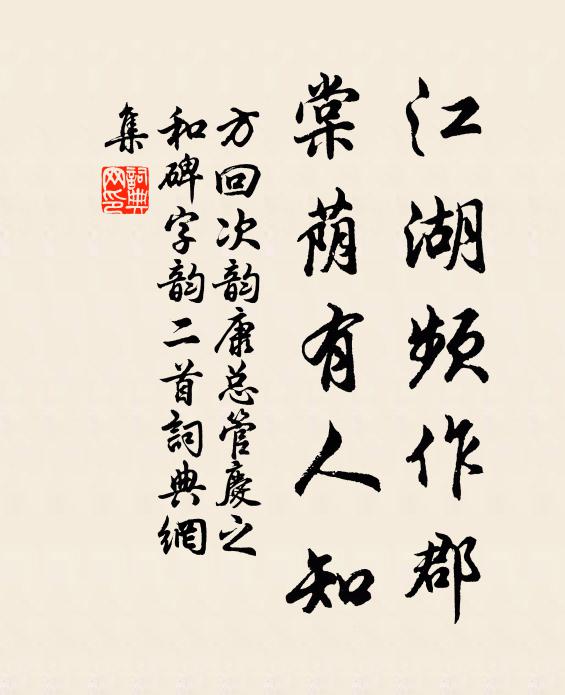 江湖频作郡
棠荫有人知
方回次韵康总管庆之
和碑字韵二首詞典網
集
詞典網印